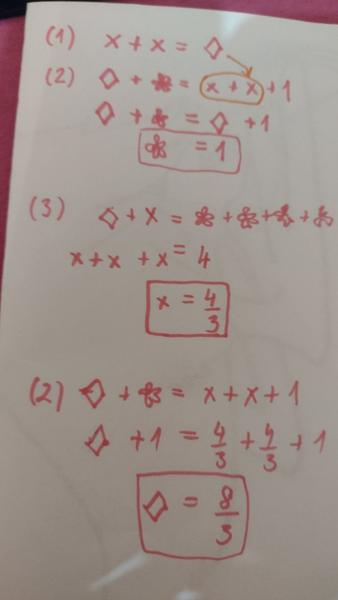 (1) x + x = ◇
(2) ◇ + ❀ = x + x + 1
◇ + ❀ = ◇ + 1
❀ = 1
(3) ◇ + x = ❀ + ❀ + ❀ + ❀
x + x + x = 4
x = 4/3
(2) ◇ + ❀ = x + x + 1
◇ + 1 = 4/3 + 4/3 + 1
◇ = 8/3